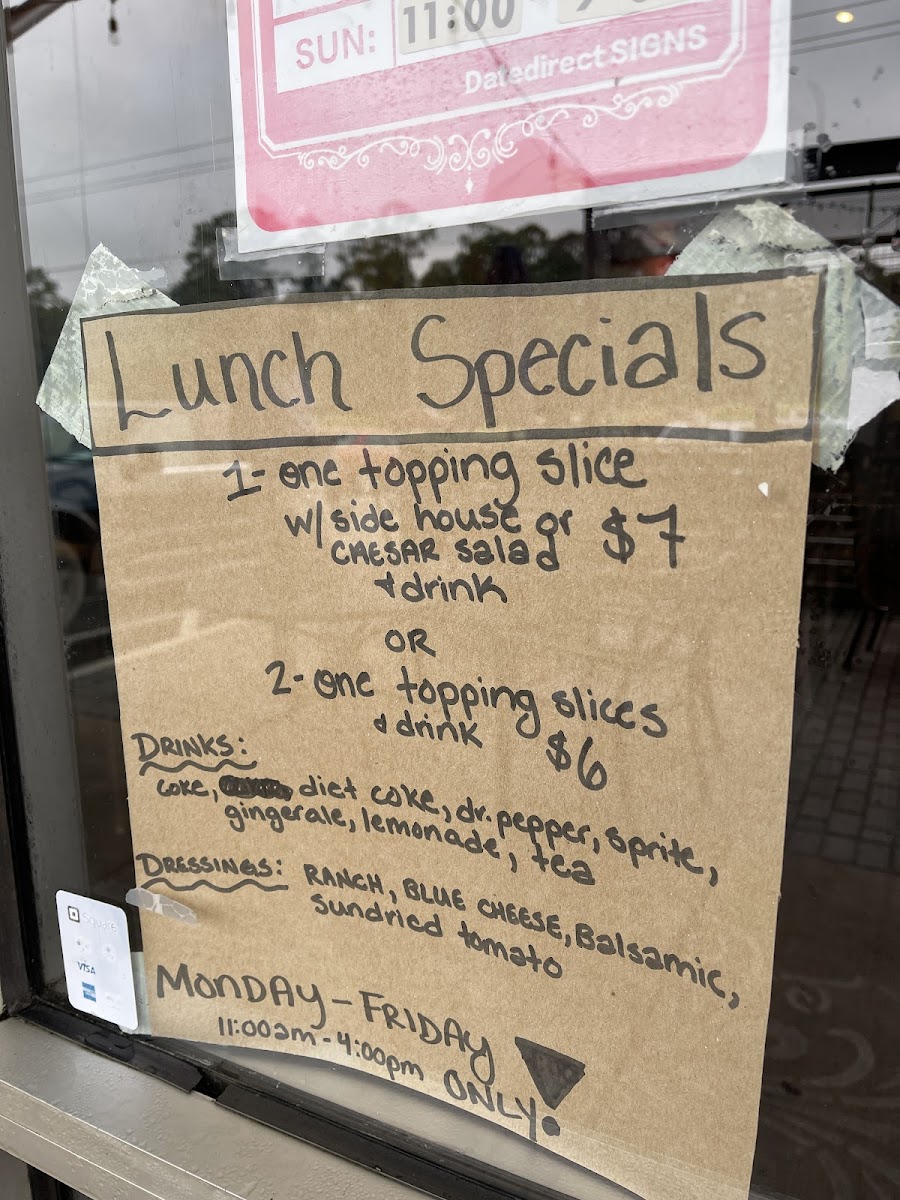 SUN: 11:00
Datedirect SIGNS
Lunch Specials
1- one topping slice
w/ side house or $7
CAESAR salad
& drink
OR
2- one topping slices
& drink $6
DRINKS:
coke, diet coke, dr. pepper, sprite,
gingerale, lemonade, tea
DRESSINGS: RANCH, BLUE CHEESE, Balsamic,
sundried tomato
MONDAY-FRIDAY
11:00am-4:00pm ONLY!
Square
VISA